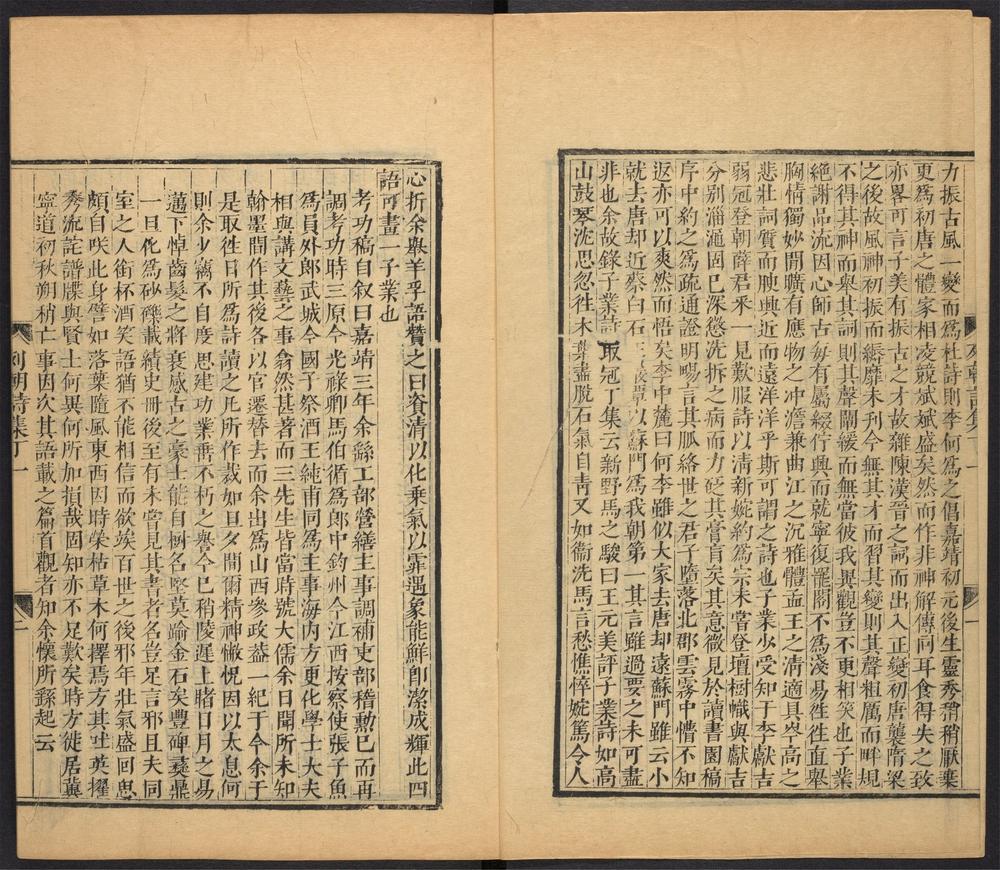 力振古風一變而為杜詩則李何為之倡嘉靖初元後生靈秀稍稍厭棄
更為初唐之體家相凌競斌斌盛矣然而作非神解傳同耳食得失之致
亦畧可言子美有振古之才故雜陳漢晉之詞而出入正變初唐襲隋梁
之後故風神初振而縟靡未刋今無其才而習其變則其聲粗厲而畔規
不得其神而舉其詞則其聲闡緩而無當彼我異觀豈不更相笑也子業
絶謝品流因心師古毎有屬綴佇興而就寧復罷閣不為淺易徃徃直舉
胸情獨妙閒曠有應物之冲澹兼曲江之沉雅體孟王之清適具岑高之
悲壯詞質而腴興近而遠洋洋乎斯可謂之詩也子業少受知于李獻吉
弱冠登朝薛君采一見歎服詩以清新婉約為宗未嘗登壇樹幟與獻吉
分别淄澠固已深懲洗拆之病而力砭其膏肓矣其意微見於讀書園稿
序中約之為疏通證明暢言其脈絡世之君子墮落北郡雲霧中懵不知
返亦可以爽然而悟矣李中麓曰何李雖似大家去唐却遠蘇門雖云小
就去唐却近蔡白石王巖潭以蘇門為我朝第一其言雖過要之未可盡
非也余故錄子業詩取冠丁集云新野馬之駿曰王元美評子業詩如高
山鼓琴沈思忽徃木葉盡脫石氣自靑又如衞洗馬言愁憔悴婉篤令人
列朝詩集丁一
一
心折余舉羊孚語贊之曰資清以化乗氣以霏遇象能鮮卽潔成輝此四
語可畫一子業也
考功稿自叙曰嘉靖三年余繇工部營繕主事調補吏部稽勲已而再
調考功時三原今光祿卿馬伯循為郎中鈞州今江西按察使張子魚
為員外郎武城今國子祭酒王純甫同為主事海内方更化學士大夫
相與講文藝之事翕然甚著而三先生皆當時號大儒余日聞所未知
翰墨間作其後各以官遷替去而余出為山西參政葢一紀于今余于
是取徃日所為詩讀之凡所作裁如旦夕間爾精神憿怳因以太息何
則余少竊不自度思建功業垂不朽之譽今已稍陵遲上睹日月之易
邁下悼齒髮之將衰感古之豪士能自樹名堅莫踰金石矣豐碑彛鼎
一旦化為砂礫載績史冊後至有未嘗見其書者名豈足言邪且夫同
室之人銜杯酒笑語猶不能相信而欲竢百世之後邪年壯氣盛回思
頗自咲此身譬如落葉隨風東西因時榮枯草木何擇焉方其吐英擢
秀流詫譜牒與賢士何異何所加損哉固知亦不足歎矣時方徙居冀
寧道初秋朔稍亡事因次其語載之篇首觀者知余懷所繇起云
列朝詩集丁一
二